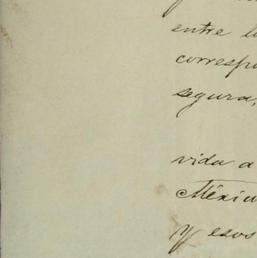 entre l
correspo
segura,
vida a
Méxic
y esos